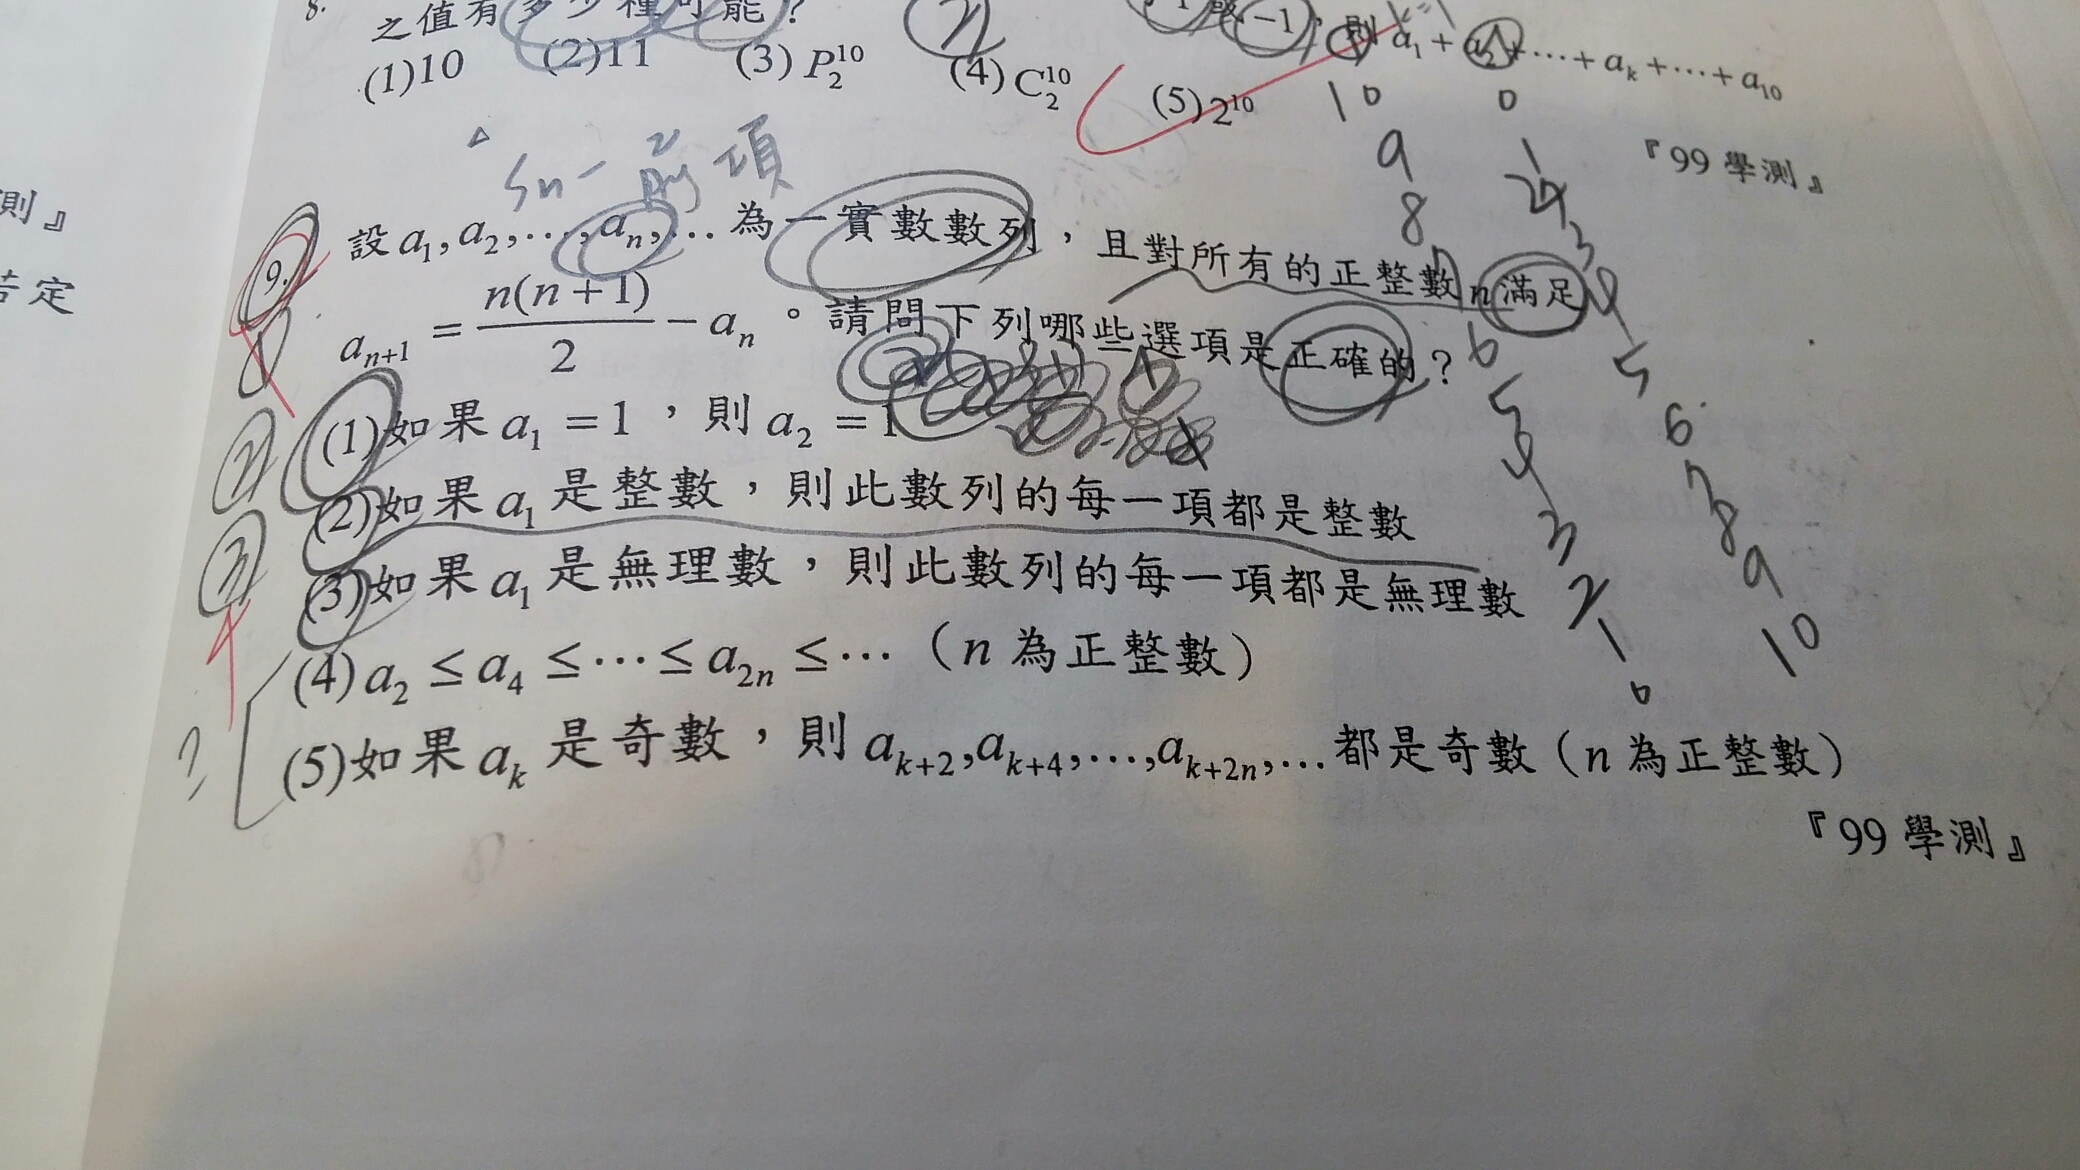 8.
之值有多少種可能？
-1，則 a₁ + a₂ + ⋯ + aₖ + ⋯ + a₁₀
(1)10 (2)11 (3) P₂¹⁰ (4) C₂¹⁰ (5) 2¹⁰
『99 學測』
測』
若定
9. 設 a₁, a₂, …, aₙ, … 為一實數數列，且對所有的正整數 n 滿足
aₙ₊₁ = n(n+1)/2 − aₙ 。請問下列哪些選項是正確的？
(1)如果 a₁ = 1 ，則 a₂ = 1
(2)如果 a₁ 是整數，則此數列的每一項都是整數
(3)如果 a₁ 是無理數，則此數列的每一項都是無理數
(4) a₂ ≤ a₄ ≤ ⋯ ≤ a₂ₙ ≤ ⋯（n 為正整數）
(5)如果 aₖ 是奇數，則 aₖ₊₂, aₖ₊₄, …, aₖ₊₂ₙ, … 都是奇數（n 為正整數）
『99 學測』
Sn-
前項
10 0
9 1
8 2
7 3
6 4
5 5
4 6
3 7
2 8
1 9
0 10